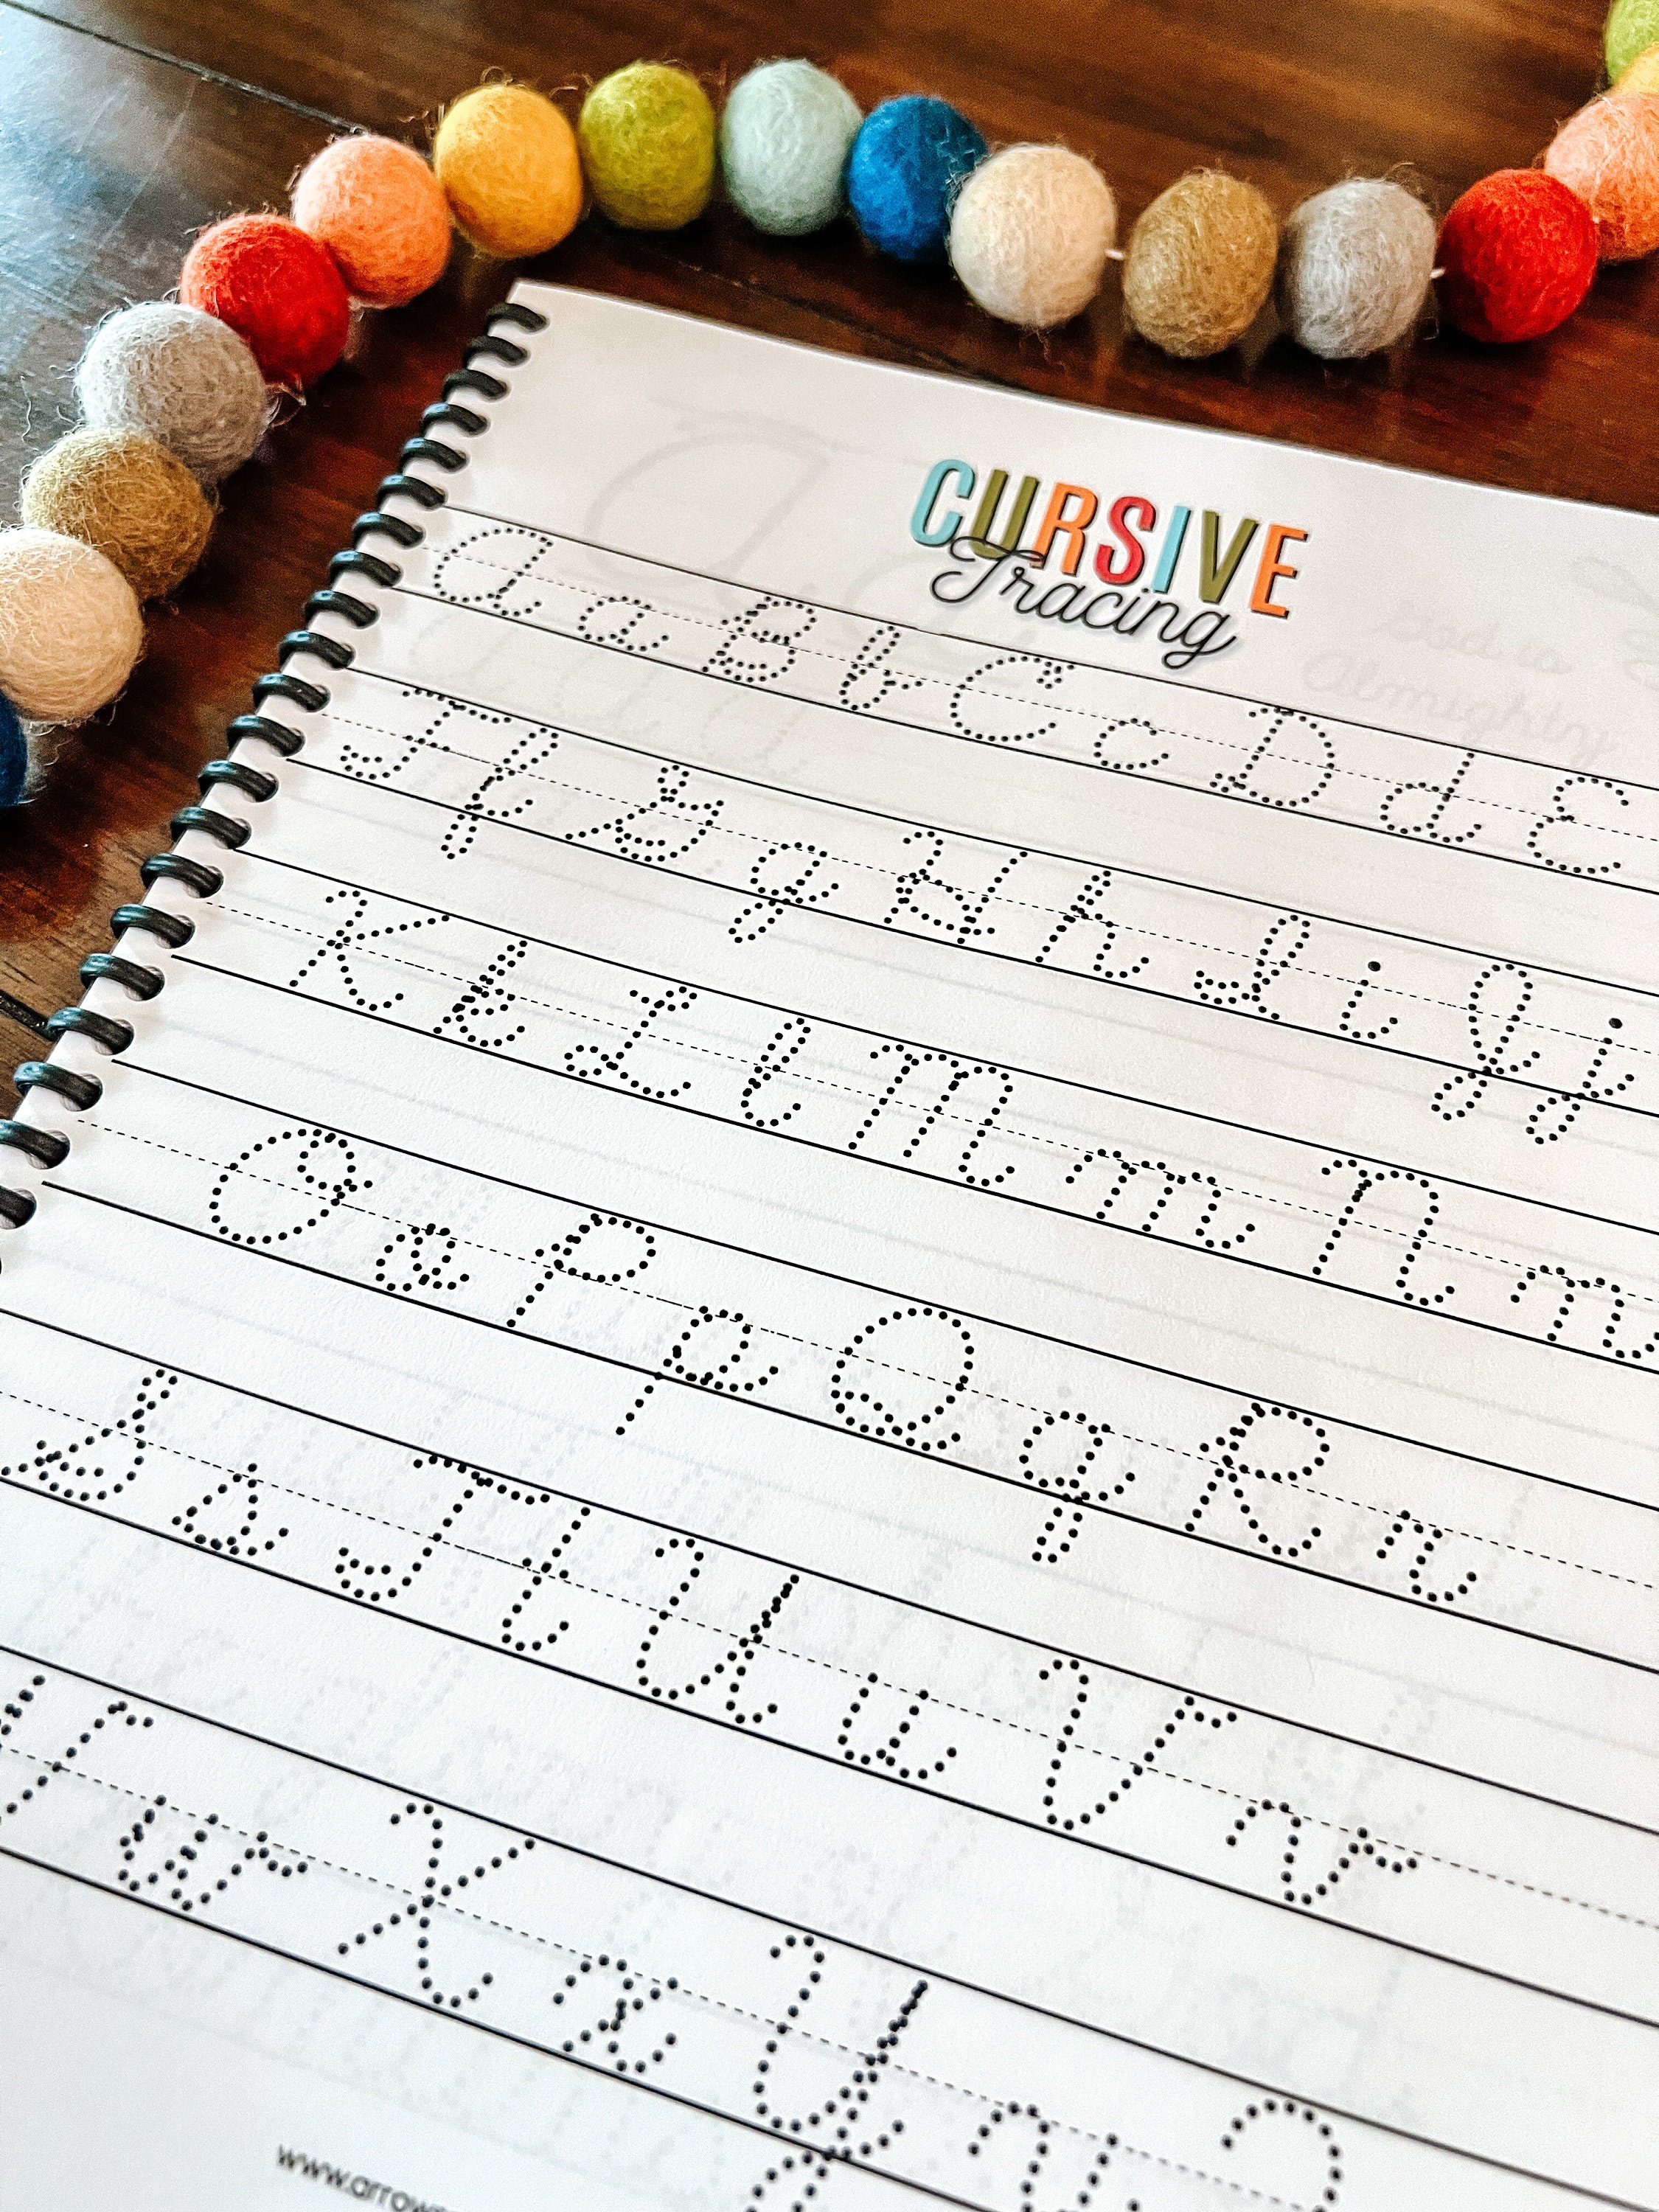 CURSIVE
Tracing
A a B b C c D d E
F f G g H h I i J j
K k L l M m N n
O o P p Q q R r
S s T t U u V v
W w X x Y y Z
www.arrow
Almighty